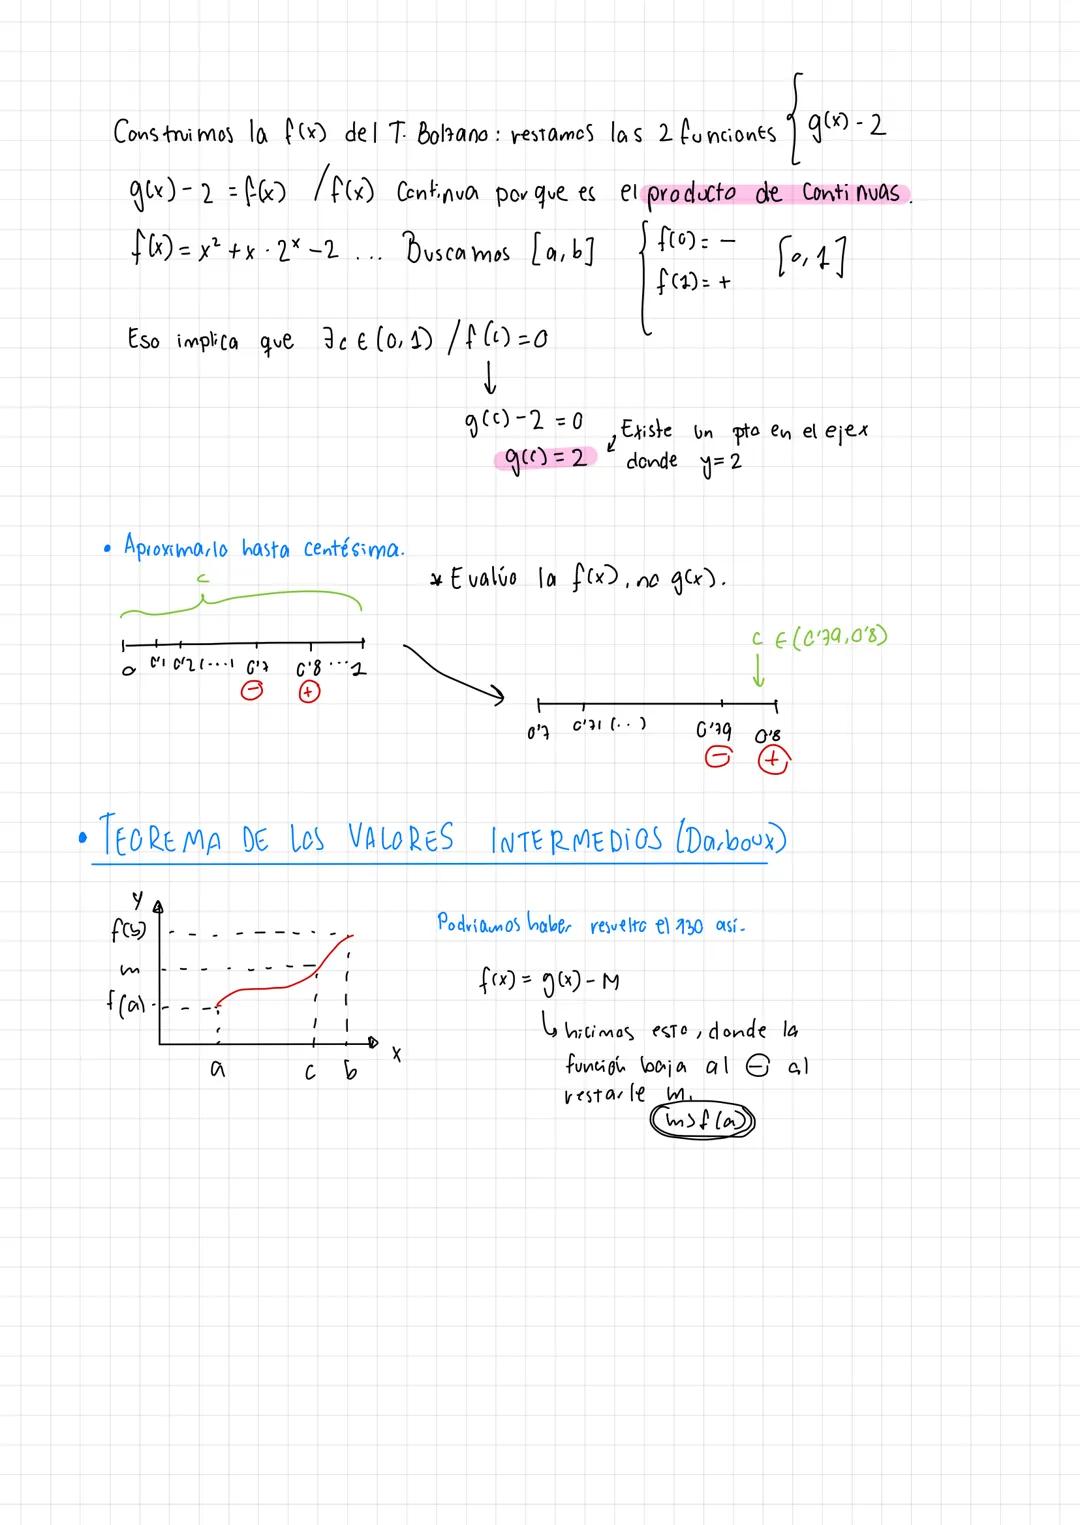 Construimos la f(x) del T. Bolzano: restamos las 2 funciones { g(x) - 2
g(x) - 2 = f(x) / f(x) Continua porque es el producto de Continuas.
f(x) = x² + x · 2ˣ - 2 ... Buscamos [a,b] { f(0) = - [0,1]
f(1) = +
Eso implica que ∃c ∈ (0,1) / f(c) = 0
↓
g(c) - 2 = 0
g(c) = 2
Existe un pto en el eje x
donde y = 2
• Aproximarlo hasta centésima.
c
* Evalúo la f(x), no g(x).
0 0'1 0'2 (...) 0'7 0'8 ... 1
- +
c ∈ (0'79, 0'8)
↓
0'7 0'71 (..) 0'79 0'8
- +
• TEOREMA DE LOS VALORES INTERMEDIOS (Darboux)
y
f(b)
m
f(a)
a c b x
Podríamos haber resuelto el 130 así.
f(x) = g(x) - M
↳ hicimos esto, donde la
función baja al ⊖ al
restarle m.
m>f(a)